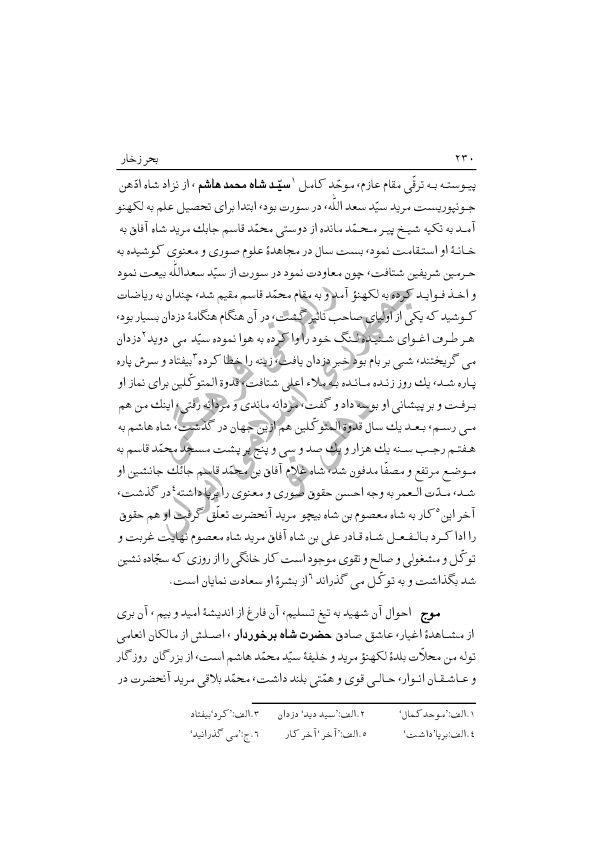 ۲۳۰ بحر زخار
پیوسته به ترقّی مقام عازم، موحّد کامل ۱سیّد شاه محمد هاشم، از نزاد شاه ادّهن
جونپوریست مرید سیّد سعد الله، در سورت بود، ابتدا برای تحصیل علم به لکهنو
آمد به تکیه شیخ پیر محمّد مانده از دوستی محمّد قاسم جابك مرید شاه آفاق به
خانۀ او استقامت نمود، بست سال در مجاهدۀ علوم صوری و معنوی کوشیده به
حرمین شریفین شتافت، چون معاودت نمود در سورت از سیّد سعدالله بیعت نمود
و اخذ فواید کرده به لکهنؤ آمد و به مقام محمّد قاسم مقیم شد، چندان به ریاضات
کوشید که یکی از اولیای صاحب تاثیر گشت، در آن هنگام هنگامۀ دزدان بسیار بود،
هر طرف اغوای شنیده لنگ خود را وا کرده به هوا نموده سیّد می دوید۲دزدان
می گریختند، شبی بر بام بود خبر دزدان یافت، زینه را خطا کرده۳بیفتاد و سرش پاره
پاره شد، یك روز زنده مانده به ملاء اعلی شتافت، قدوة المتوکّلین برای نماز او
برفت و بر پیشانی او بوسه داد و گفت، مردانه ماندی و مردانه رفتی، اینك من هم
می رسم، بعد یك سال قدوة المتوکّلین هم ازین جهان در گذشت، شاه هاشم به
هفتم رجب سنه یك هزار و یك صد و سی و پنج بر پشت مسجد محمّد قاسم به
موضع مرتفع و مصفّا مدفون شد، شاه غلام آفاق بن محمّد قاسم جائك جانشین او
شد، مدّت العمر به وجه احسن حقوق صوری و معنوی را برپا داشته۴در گذشت،
آخر این۵کار به شاه معصوم بن شاه بیچو مرید آنحضرت تعلّق گرفت او هم حقوق
را ادا کرد بالفعل شاه قادر علی بن شاه آفاق مرید شاه معصوم نهایت غربت و
توکّل و مشغولی و صالح و تقوی موجود است کار خانگی را از روزی که سجّاده نشین
شد بگذاشت و به توکّل می گذراند۶از بشرۀ او سعادت نمایان است.
موج احوال آن شهید به تیغ تسلیم، آن فارغ از اندیشۀ امید و بیم، آن بری
از مشاهدۀ اغیار، عاشق صادق حضرت شاه برخوردار، اصلش از مالکان انعامی
توله من محلّات بلدۀ لکهنؤ مرید و خلیفۀ سیّد محمّد هاشم است، از بزرگان روزگار
و عاشقان انوار، حالی قوی و همّتی بلند داشت، محمّد بلاقی مرید آنحضرت در
۱.الف:'موحد کمال' ۲.الف:'سید دید' دزدان ۳.الف:'کرد'بیفتاد
۴.الف:برپا'داشت' ۵.الف:'آخر'آخر کار ۶.ج:'می گذرانید'